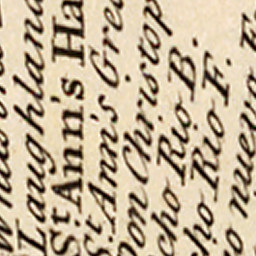 Laughland
St. Ann's Ha
St. Ann's Gre
Don Christop
cho Rio B.
ho Rio F.
o nuevo F